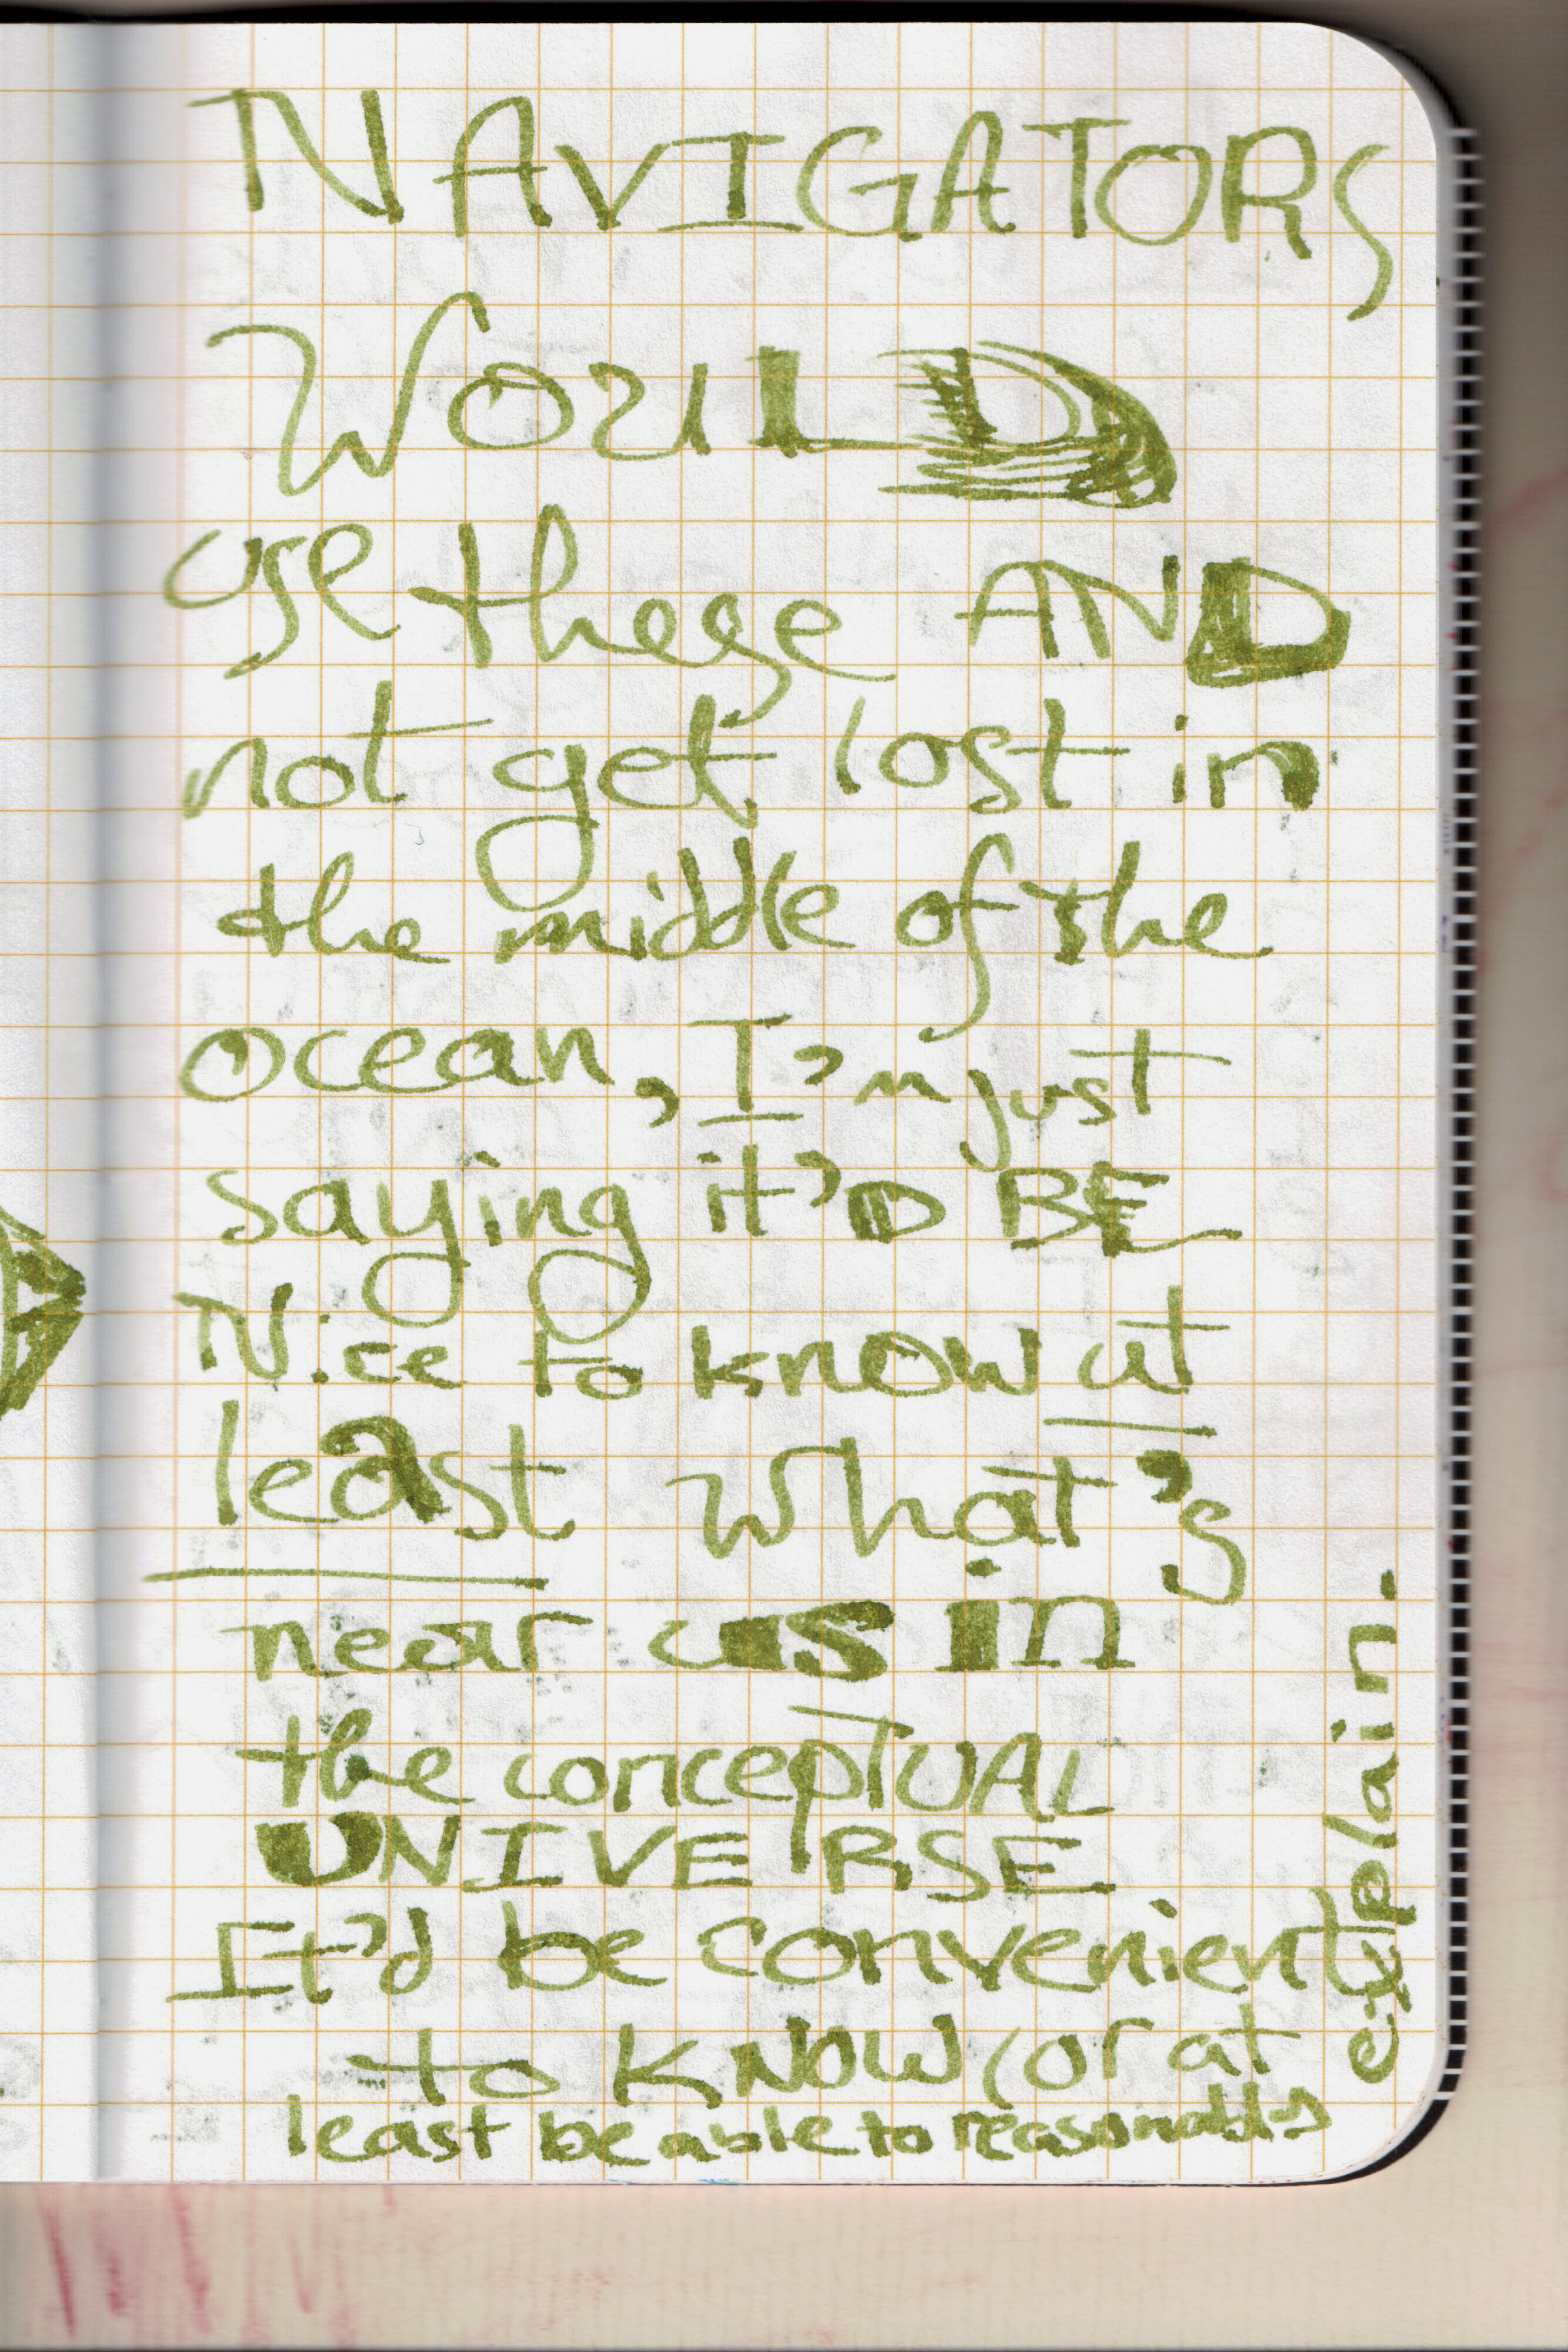 NAVIGATORS
WOULD
use these AND
not get lost in
the middle of the
ocean, I'm just
saying it'D BE
Nice to know at
least what's
near us in
the concepTUAL
UNIVERSE
It'd be convenient
to KNOW (or at
least be able to reasonably
explain.